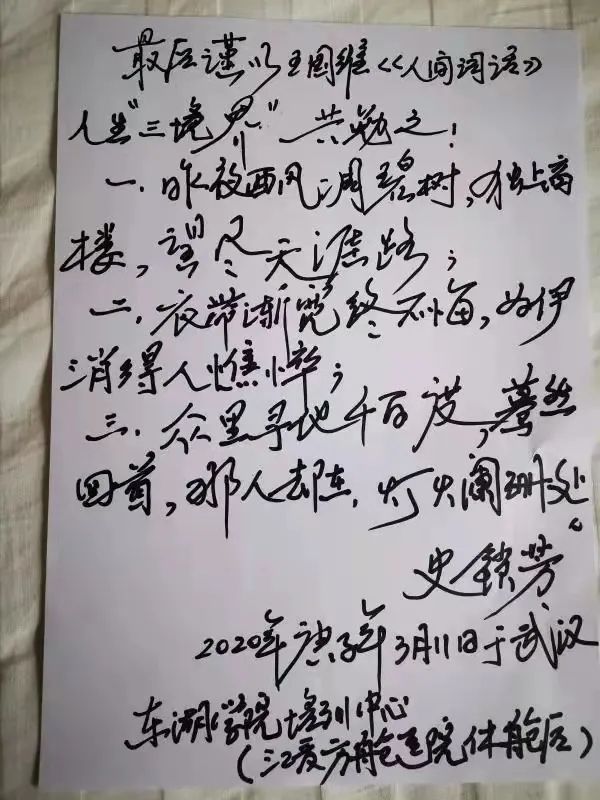 最后谨以王国维《《人间词话》
人生"三境界"共勉之！
一.昨夜西风凋碧树，独上高
楼，望尽天涯路；
二.衣带渐宽终不悔，为伊
消得人憔悴；
三.众里寻他千百度，蓦然
回首，那人却在，灯火阑珊处。
史锁芳
2020年庚子年3月11日于武汉
东湖学院培训中心
（江夏方舱医院休舱后）